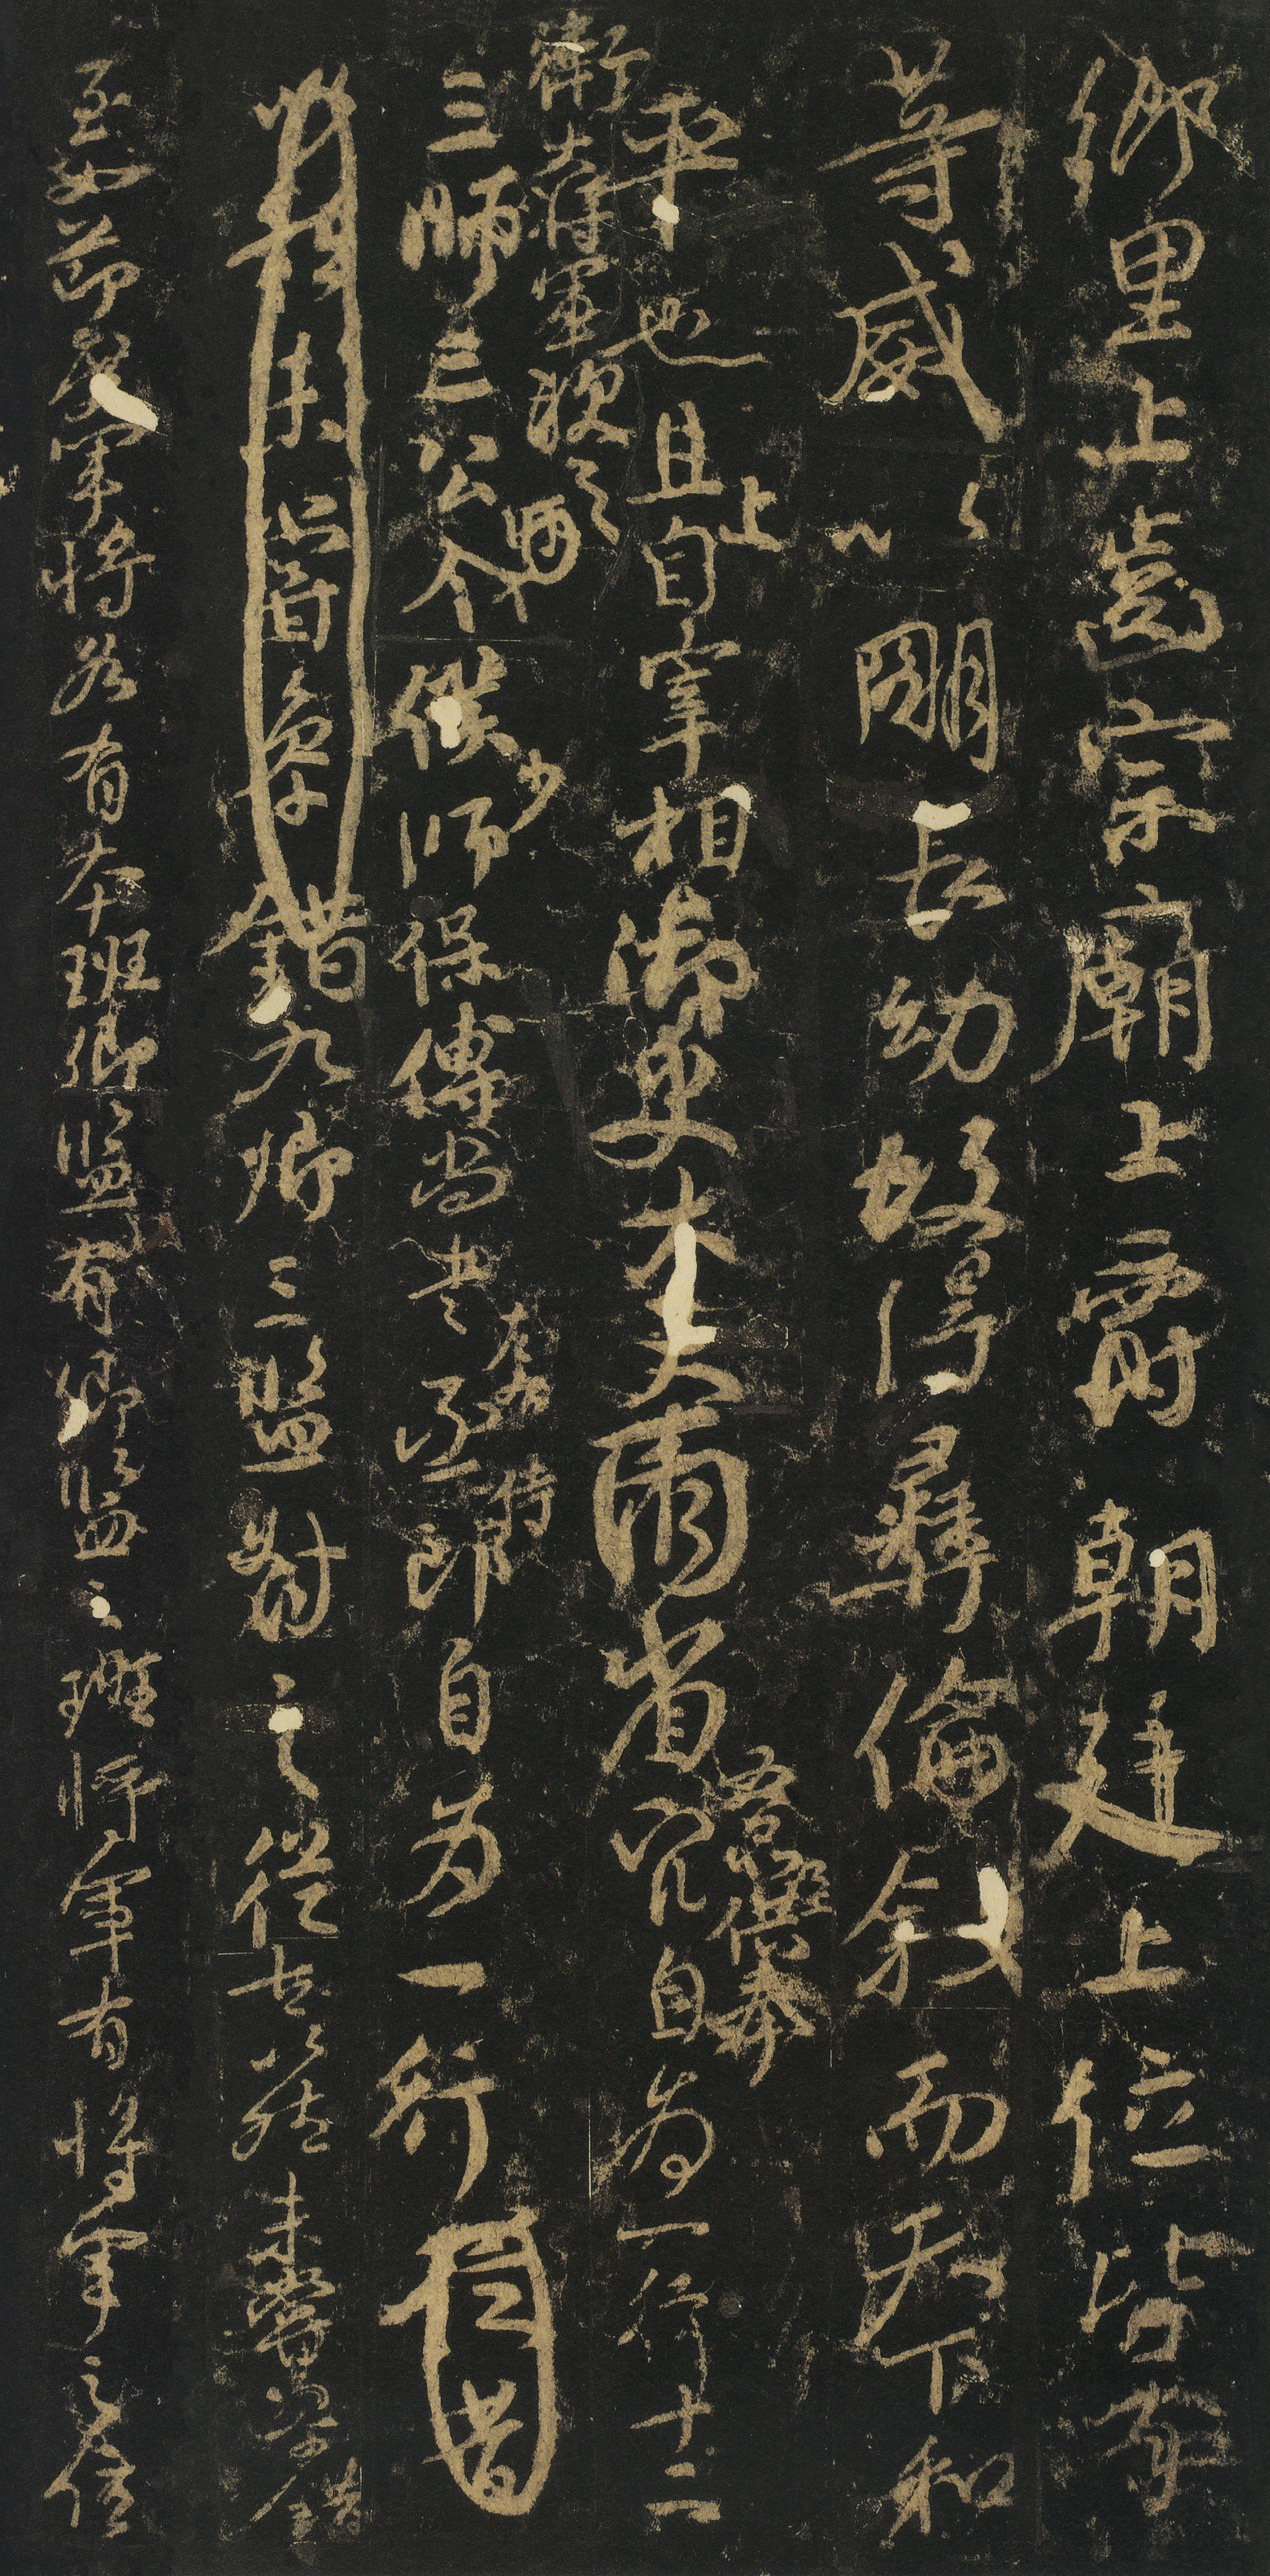 鄉里上齒宗廟上爵朝廷上位皆有
等威以明長幼故得彝倫叙而天下和
平也且上自宰相御史大夫兩省五品以上供奉官自為一行十二
衛大將軍次之三師三公令僕少師保傅尚書左右丞侍郎自為一行
未嘗參錯九卿三監對之從古以然未嘗參錯
至如節度軍將各有本班卿監有卿監之班將軍有將軍之位